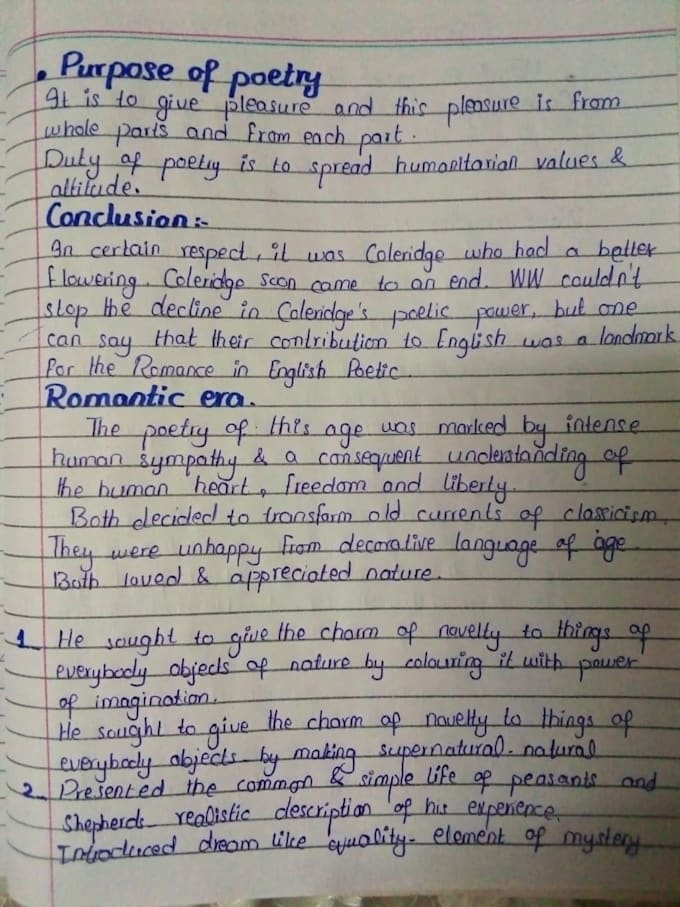 • Purpose of poetry
It is to give pleasure and this pleasure is from
whole parts and from each part.
Duty of poetry is to spread humanitarian values &
attitude.
Conclusion:-
In certain respect, it was Coleridge who had a better
flowering. Coleridge soon came to an end. WW couldn't
stop the decline in Coleridge's poetic power, but one
can say that their contribution to English was a landmark
for the Romance in English Poetic.
Romantic era.
The poetry of this age was marked by intense
human sympathy & a consequent understanding of
the human heart, freedom and liberty.
Both decided to transform old currents of classicism.
They were unhappy from decorative language of age.
Both loved & appreciated nature.
1. He sought to give the charm of novelty to things of
everybody objects of nature by colouring it with power
of imagination.
He sought to give the charm of novelty to things of
everybody objects by making supernatural-natural
2. Presented the common & simple life of peasants and
Shepherds realistic description of his experience.
Introduced dream like quality- element of mystery